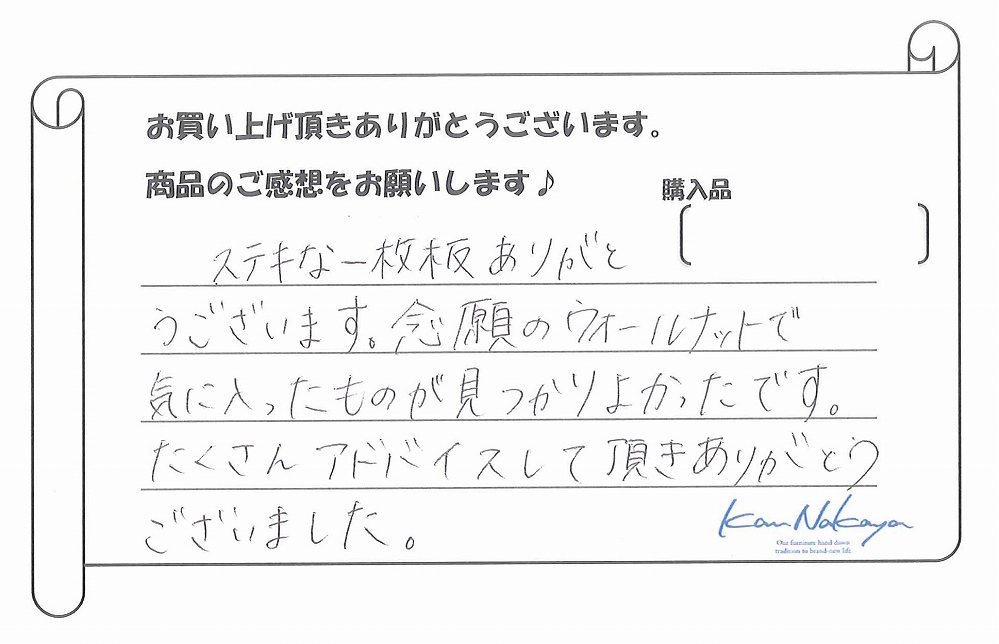 お買い上げ頂きありがとうございます。
商品のご感想をお願いします♪
購入品
ステキな一枚板ありがと
うございます。念願のウォールナットで
気に入ったものが見つかりよかったです。
たくさんアドバイスして頂きありがとう
ございました。
Kan Nakaya
Our furniture hand down
tradition to brand-new life